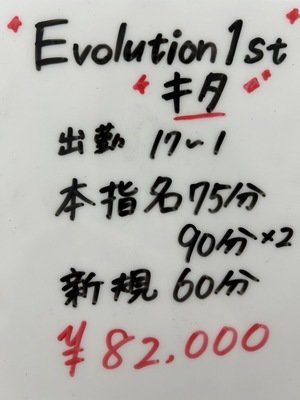 Evolution1st
キタ
出勤 17〜1
本指名75分
90分×2
新規 60分
¥82,000